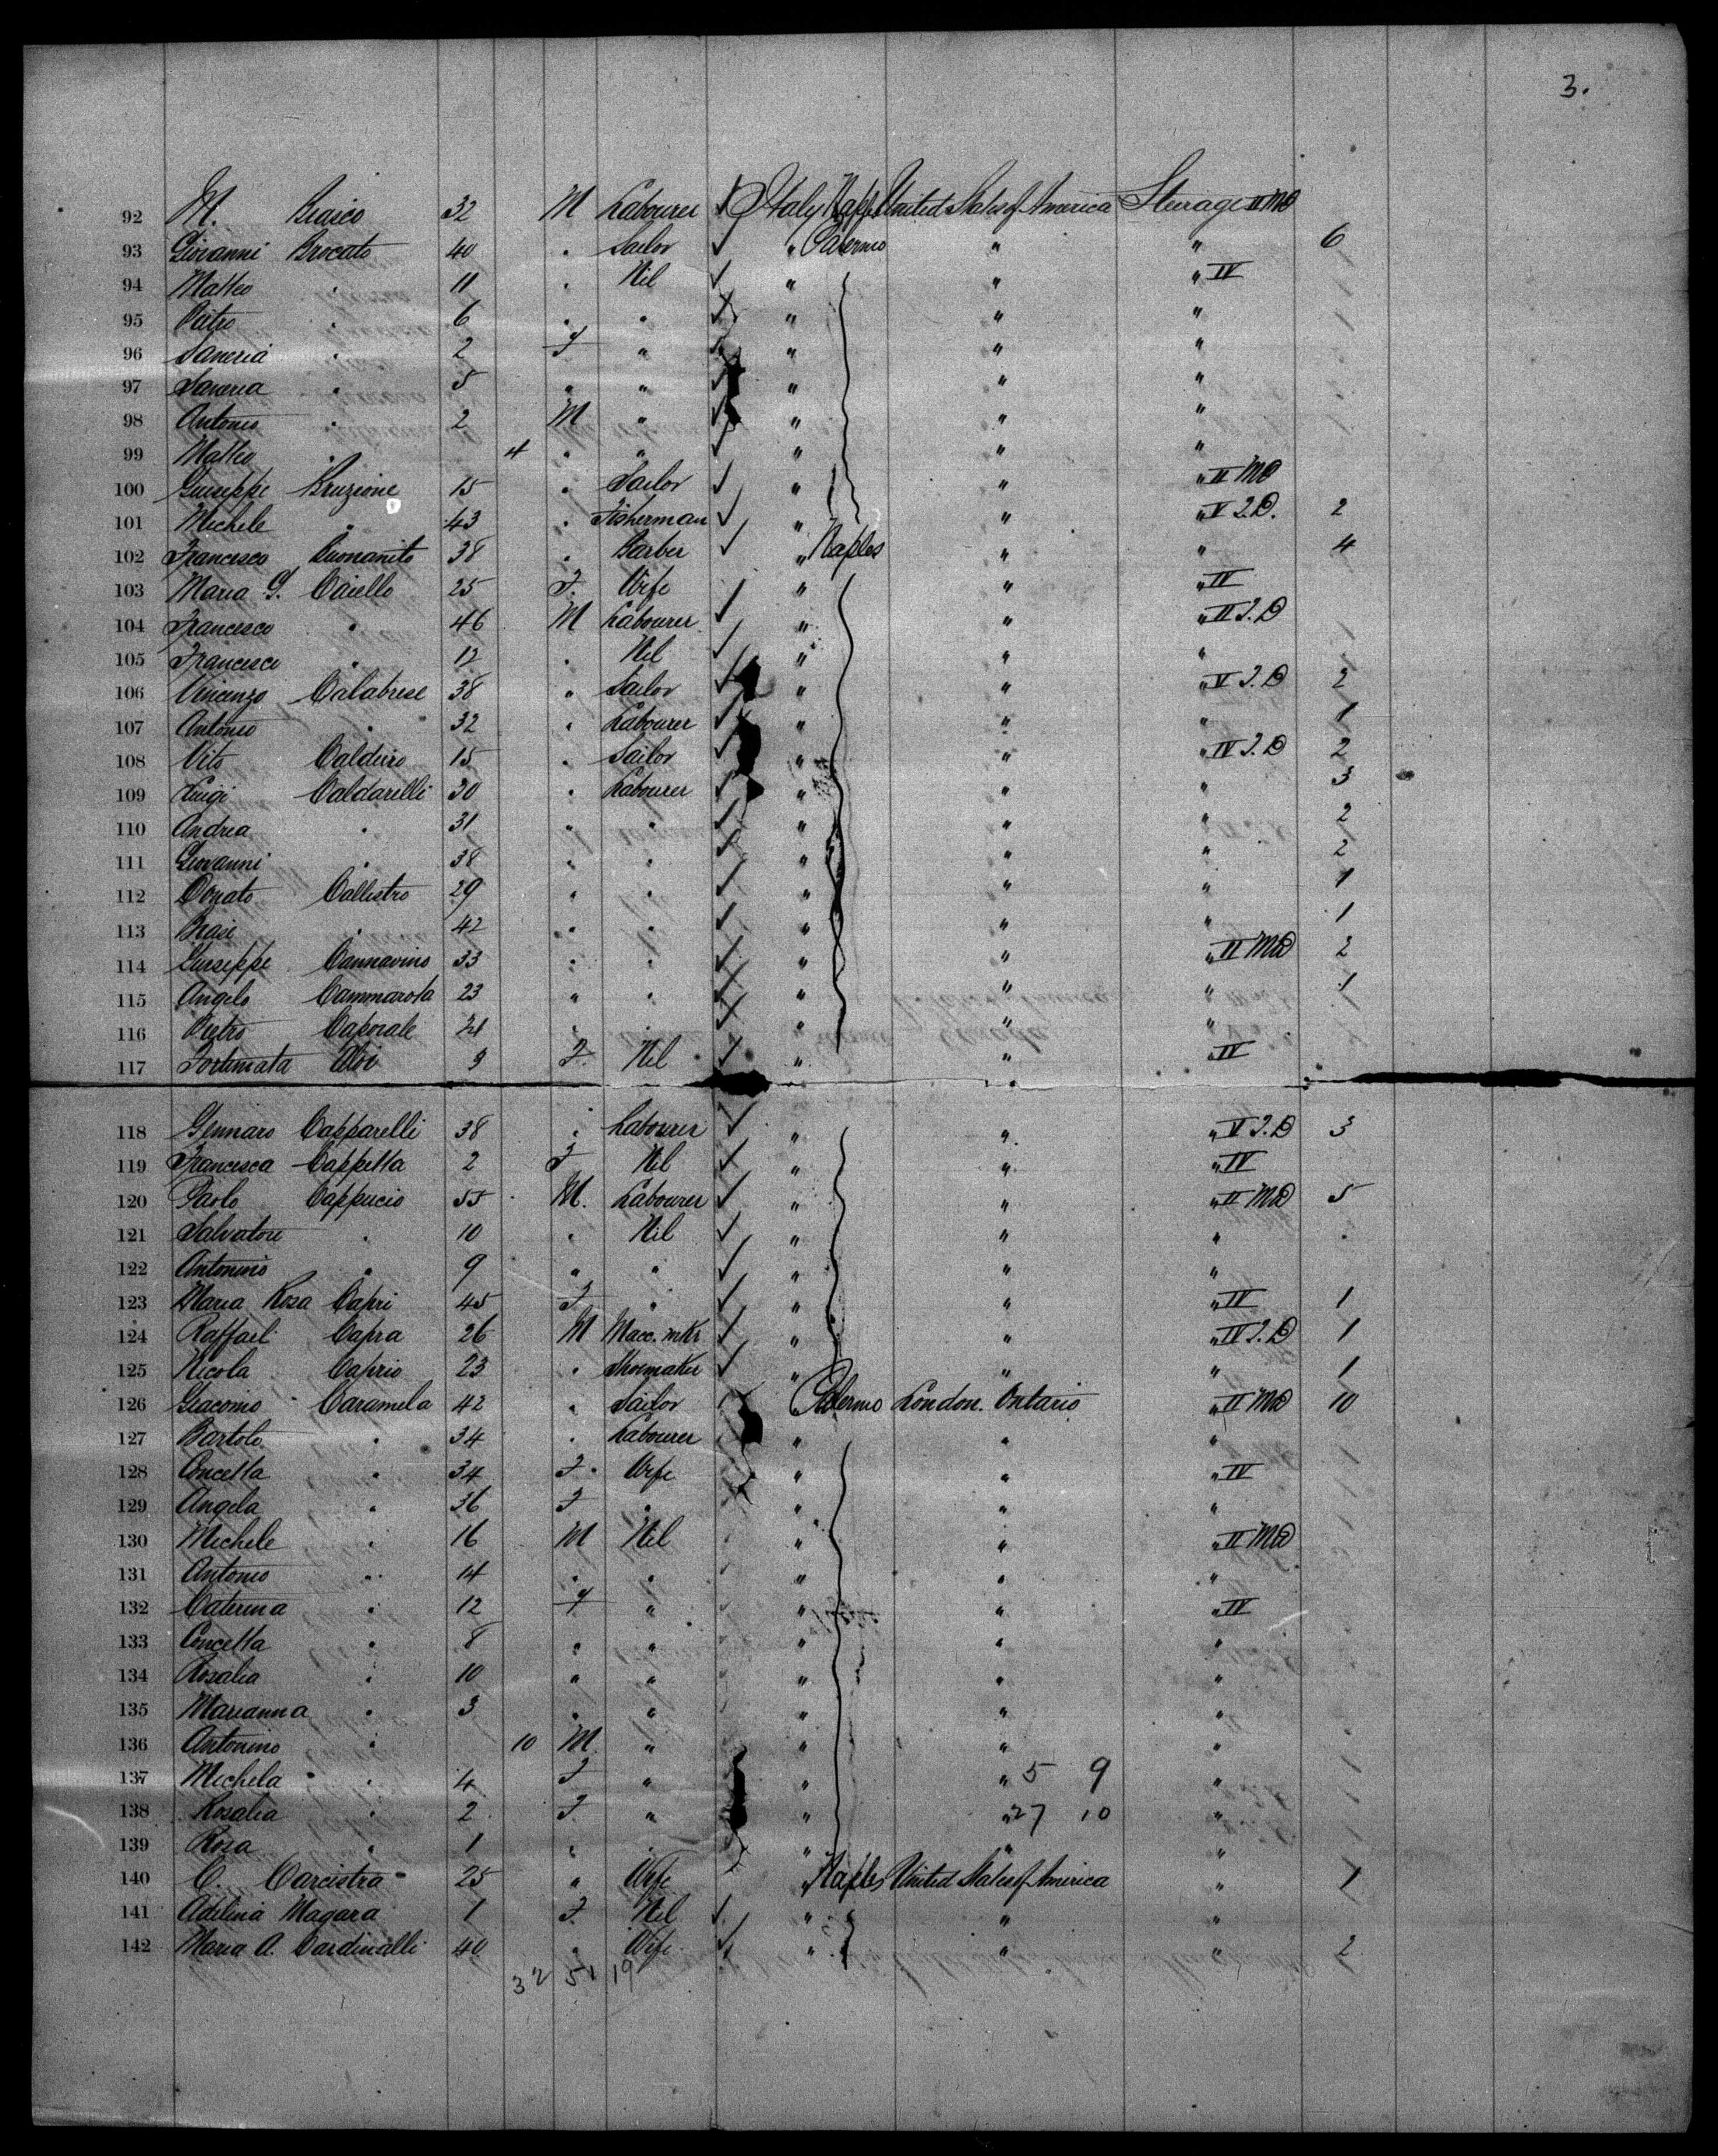 3.
92 M. Biaico 32 M Labourer ✓ Italy Naples United States of America Steerage II MD
93 Giovanni Brocato 40 " Sailor ✓ " Palermo " " 6
94 Matteo " 11 " Nil ✓ " " " IV
95 Pietro " 6 " " ✓ " " "
96 Saveria " 2 F " " " "
97 Saveria " 5 " " ✓ " " "
98 Antonio " 2 M " ✓ " " "
99 Matteo " 4 " " ✓ " " "
100 Giuseppe Bruzione 15 " Sailor ✓ " " " II MD
101 Michele " 43 " Fisherman ✓ " " " V 2.D. 2
102 Francesco Buonanito 38 " Barber ✓ " Naples " " 4
103 Maria G. Caiello 25 F. Wife ✓ " " " IV
104 Francesco " 46 M Labourer ✓ " " " II 2.D
105 Francesco " 12 " Nil ✓ " " "
106 Vincenzo Calabrese 38 " Sailor ✓ " " " V 2.D 2
107 Antonio " 32 " Labourer ✓ " " " 1
108 Vito 15 " Sailor ✓ " " " IV 2.D 2
109 Luigi Caldarelli 30 " Labourer ✓ " " " 3
110 Andrea " 31 " " ✓ " " " 2
111 Giovanni " 38 " " ✓ " " " 2
112 Donato Callistro 29 " " ✓ " " " 1
113 Biase " 42 " " ✓ " " " 1
114 Giuseppe Cannavino 33 " " ✓ " " " II MD 2
115 Angelo Cammarota 23 " " ✓ " " " 1
116 Pietro Caporale 21 " " ✓ " " "
117 Fortunata Aloi 3 F. Nil ✓ " " " IV
118 Gennaro Capparelli 38 " Labourer ✓ " " " V 2.D 3
119 Francesca Cappetta 2 F Nil ✓ " " " IV
120 Paolo Cappucio 55 M. Labourer ✓ " " " II MD 5
121 Salvatore " 10 " Nil ✓ " " "
122 Antonino " 9 " " ✓ " " "
123 Maria Rosa Capri 45 F " ✓ " " " IV 1
124 Raffael Capra 26 M Macc. mkr ✓ " " " IV 2.D 1
125 Nicola Caprio 23 " Shoemaker ✓ " " " 1
126 Giacomo Caramela 42 " Sailor " Palermo London. Ontario " II MD 10
127 Bartolo " 34 " Labourer " " "
128 Concetta " 34 F. Wife " " " IV
129 Angela " 36 F " " " "
130 Michele " 16 M Nil " " " II MD
131 Antonio " 14 " " " " "
132 Caterina " 12 F " " " " IV
133 Concetta " 8 " " " " "
134 Rosalia " 10 " " " " "
135 Marianna " 3 " " " " "
136 Antonino " 10 M " " " "
137 Michela " 4 F " " " 5 9 "
138 Rosalia " 2 F " " " 27 10 "
139 Rosa " 1 " " " " "
140 C. Carcistra 25 " Wife " Naples United States of America " 1
141 Adelina Magara 1 F. Nil ✓ " " "
142 Maria A. Cardinalli 40 " Wife ✓ " " " 2
32 51 19